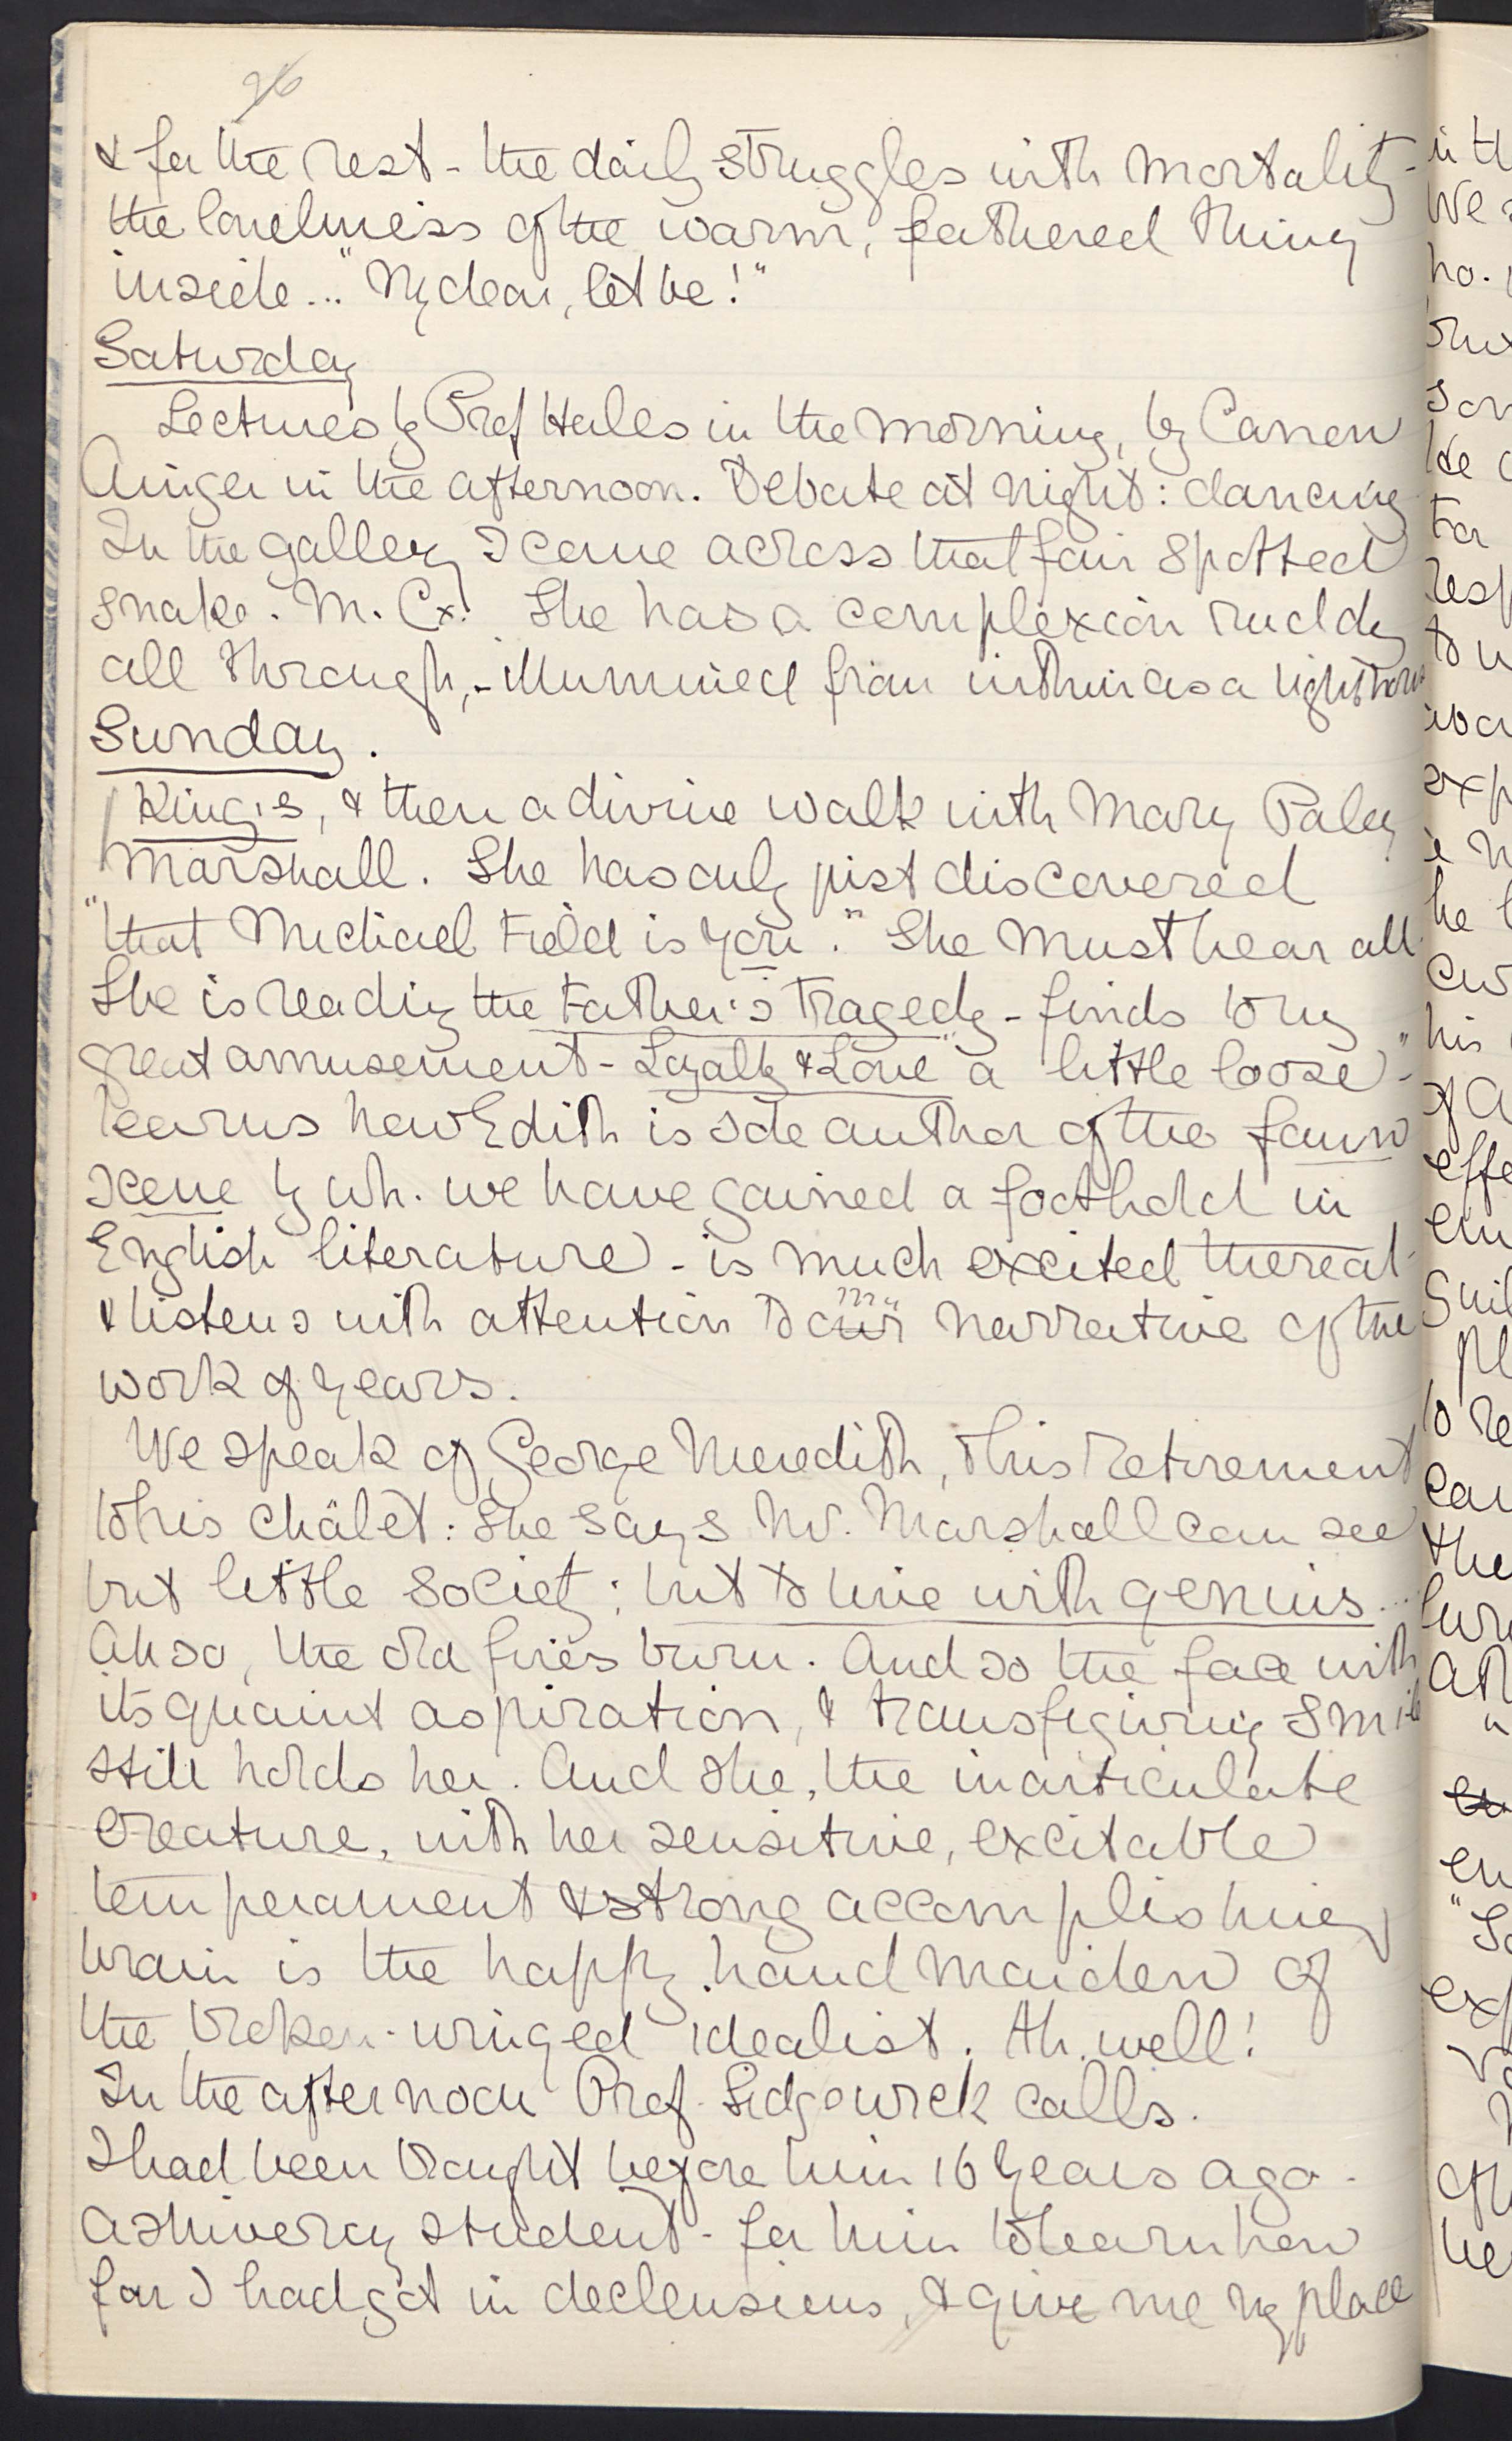 26
& for the rest - the daily struggles with mortality -
the loneliness of the warm, feathered thing
inside... "My dear, let be!"
Saturday
Lectures by Prof Hales in the morning, by Canon
Ainger in the afternoon. Debate at night: dancing
In the gallery I came across that fair spotted
snake. M. C. She has a complexion ruddy
all through, - illumined from within as a lighthouse
Sunday.
King's, & then a divine walk with Mary Paley
Marshall. She has only just discovered
"that Michael Field is you." She must hear all.
She is reading the Father's Tragedy - finds to my
great amusement - Loyalty & Love "a little loose" -
learns how Edith is sole author of the faun
scene by wh. we have gained a foothold in
English literature - is much excited thereat
& listens with attention to our narrative of the
work of years.
We speak of George Meredith, & his retirement
to his châlet: she says Mr. Marshall can see
but little society; but to live with genius...
Ah so, the old fires burn. And so the face with
its quaint aspiration, & transfiguring smile
still holds her. And she, the inarticulate
creature, with her sensitive, excitable
temperament & strong accomplishing
brain is the happy handmaiden of
the broken-winged idealist. Ah well!
In the afternoon Prof. Sidgewick calls.
I had been brought before him 16 years ago -
a shivering student - for him to learn how
far I had got in declensions, & give me my place